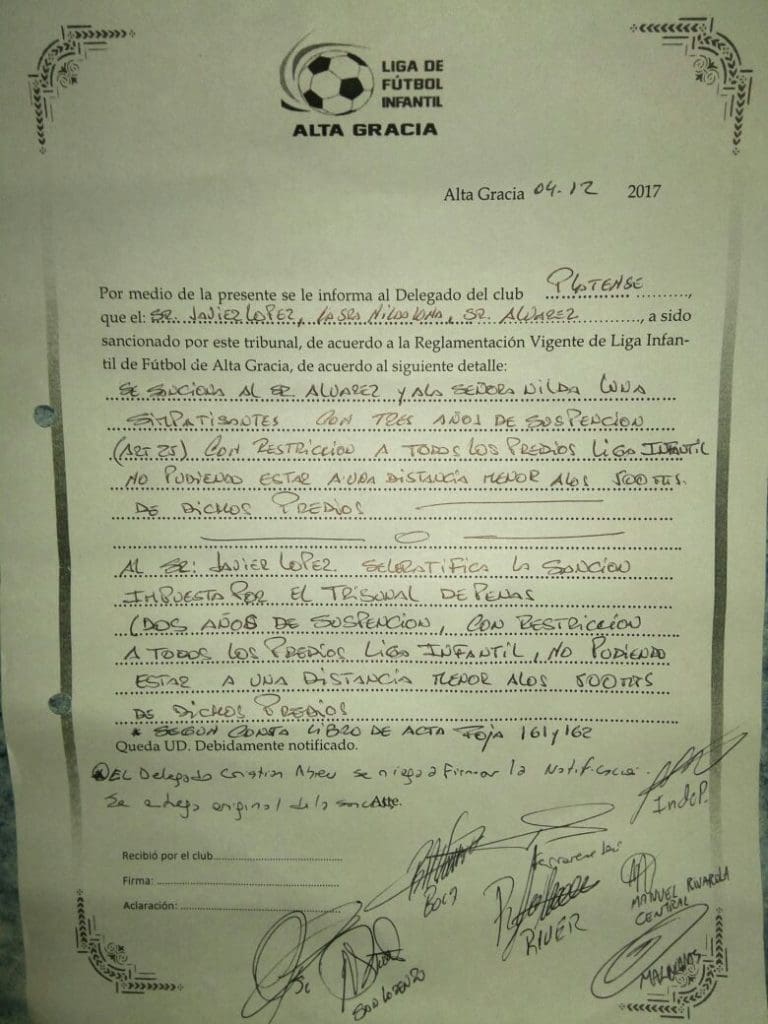 LIGA DE
FÚTBOL
INFANTIL
ALTA GRACIA
Alta Gracia 04-12 2017
Por medio de la presente se le informa al Delegado del club PLATENSE,
que el: SR. JAVIER LOPEZ, LA SRA NILDA LUNA, SR. ALVAREZ, a sido
sancionado por este tribunal, de acuerdo a la Reglamentación Vigente de Liga Infan-
til de Fútbol de Alta Gracia, de acuerdo al siguiente detalle:
SE SANCIONA AL SR. ALVAREZ Y A LA SEÑORA NILDA LUNA
SIMPATISANTES CON TRES AÑOS DE SUSPENCION
(ART 25). CON RESTRICCION A TODOS LOS PREDIOS LIGA INFANTIL
NO PUDIENDO ESTAR A UNA DISTANCIA MENOR A LOS 500 MTS.
DE DICHOS PREDIOS
AL SR: JAVIER LOPEZ SE LE RATIFICA LA SANCION
IMPUESTA POR EL TRIBUNAL DE PENAS
(DOS AÑOS DE SUSPENCION, CON RESTRICCION
A TODOS LOS PREDIOS LIGA INFANTIL, NO PUDIENDO
ESTAR A UNA DISTANCIA MENOR A LOS 500 MTS
DE DICHOS PREDIOS
* SEGUN CONSTA LIBRO DE ACTA FOJA 161 y 162
Queda UD. Debidamente notificado.
EL Delegado Cristian Abreu se niega a Firmar la Notificacion.
Se entrega original de la
IndeP.
Recibió por el club
Firma:
Aclaración:
BOCA
RIVER
MANUEL RIVAROLA
CENTRAL
SAN LORENZO
MALVINAS